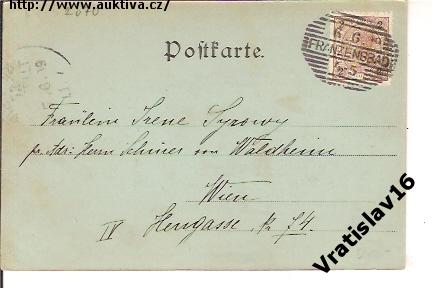 http://www.auktiva.cz/
2070
Postkarte.
FRANZENSBAD
Fräulein Irene Syrowy
pr. Adr: Herrn Schiner von Waldheim
Wien
IV Heugasse, Nr 74.
Vratislav16